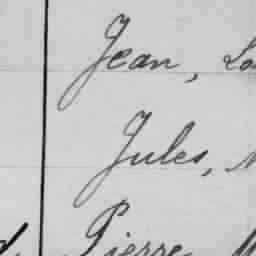 Jean,
Jules,
Pierre